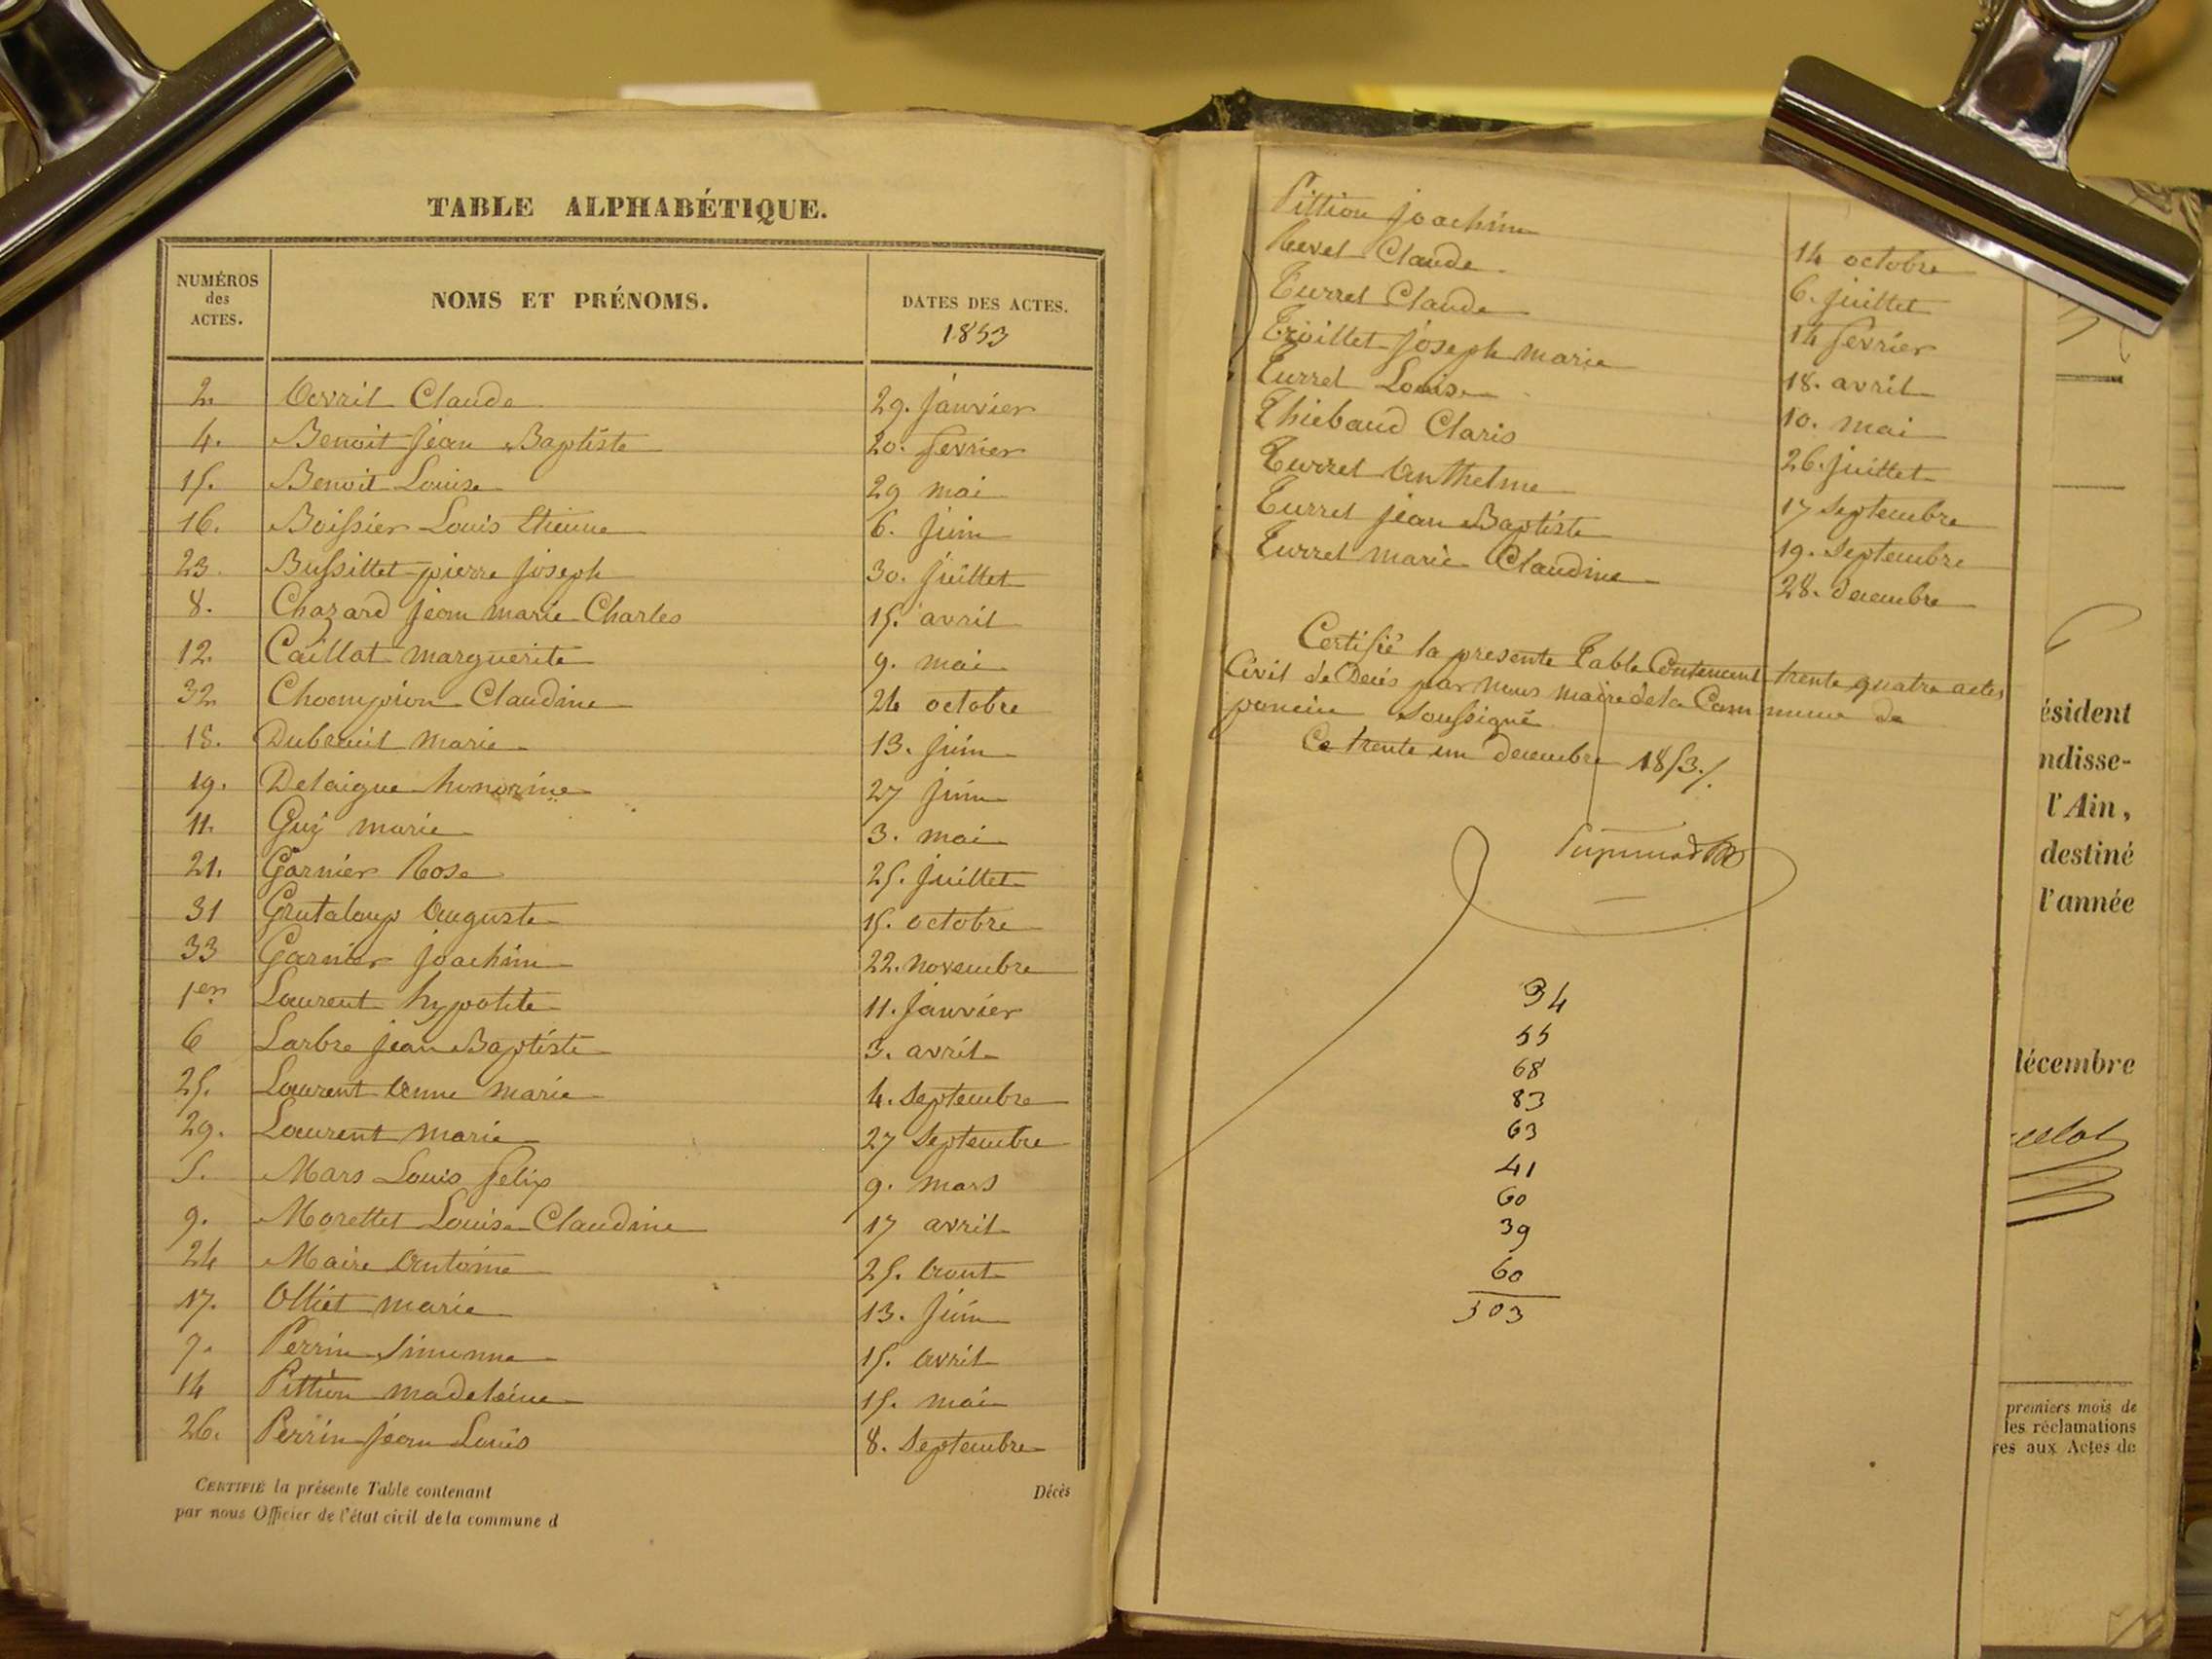 TABLE ALPHABÉTIQUE.
NUMÉROS des ACTES. NOMS ET PRÉNOMS. DATES DES ACTES.
1853
2. Avril Claude 29. janvier
4. Benoit jean Baptiste 20. fevrier
15. Benoit Louise 29 mai
16. Boissier Louis Etienne 6. juin
23. Bussillet pierre joseph 30. juillet
8. Chazard jean marie Charles 15. avril
12. Caillat marguerite 9. mai
32 Champion Claudine 24 octobre
18. Dubreuil marie 13. juin
19. Delaigue honorine 27 juin
11. Guy marie 3. mai
21. Garnier Rose 25. juillet
31 Grataloup Auguste 15. octobre
33 Garnier joachim 22. novembre
1er Laurent hypolite 11. janvier
6 Larbre jean Baptiste 3. avril
25. Laurent Anne marie 4. Septembre
29. Laurent marie 27 Septembre
5. Mars Louis felix 9. mars
9. Morettet Louise Claudine 17 avril
24 Maire Antoine 25. Aout
17. Olliet marie 13. juin
7. Perrin Simonne 15. avril
14 Pittion madeleine 15. mai
26. Perrin jean Louis 8. Septembre
CERTIFIÉ la présente Table contenant Décès
par nous Officier de l'état civil de la commune d
Pittion joachim 14 octobre
Revel Claude 6. juillet
Turrel Claude 14 fevrier
Troillet joseph marie 18. avril
Turrel Louise 10. mai
Thiebaud Claris 26. juillet
Turrel Anthelme 17 Septembre
Turrel jean Baptiste 19. Septembre
Turrel marie Claudine 28. decembre
Certifié la presente Table Contenant trente quatre actes
Civil de Decés par nous maire de la Commune de
poncin soussigné
Ce trente un decembre 1853./.
34
55
68
83
63
41
60
39
60
503
ésident
ndisse-
l'Ain,
destiné
l'année
décembre
premiers mois de
les réclamations
res aux Actes de